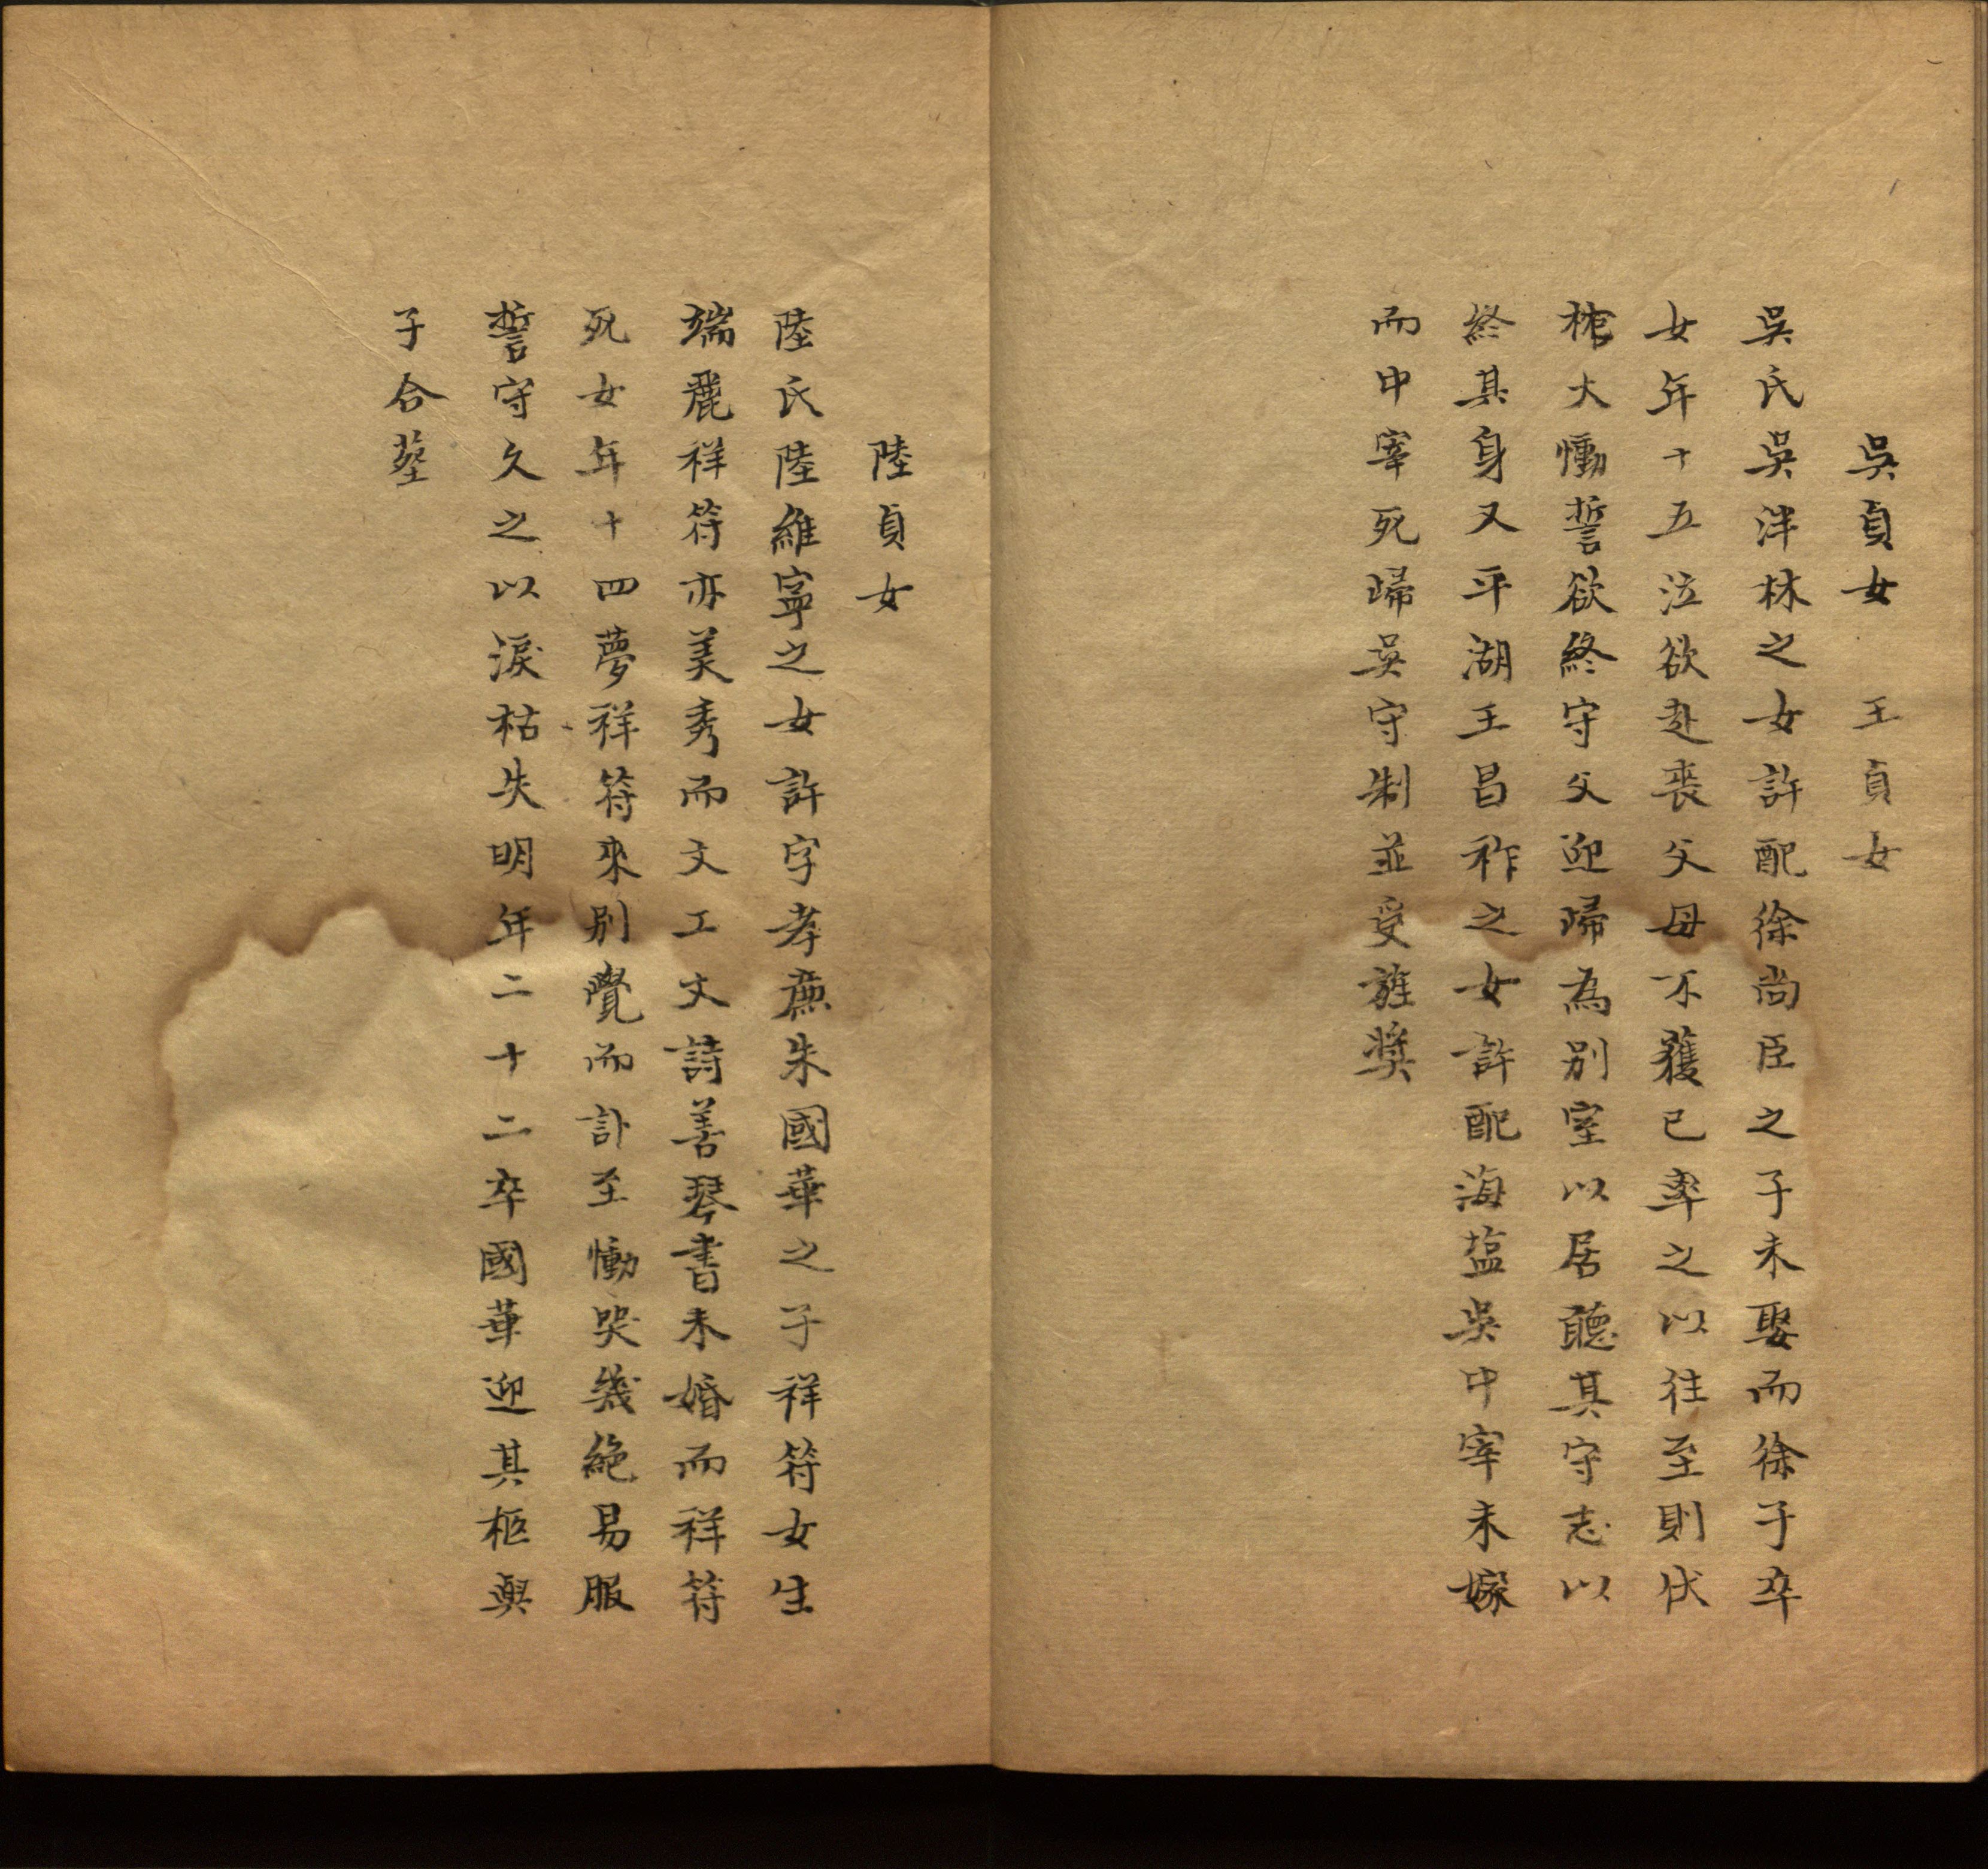 吳貞女　王貞女
吳氏吳泮林之女許配徐尚臣之子未娶而徐子卒
女年十五泣欲赴喪父母不獲已率之以往至則伏
棺大慟誓欲終守父迎歸為別室以居聽其守志以
終其身又平湖王昌祚之女許配海塩吳中宰未嫁
而中宰死歸吳守制並受旌奬
陸貞女
陸氏陸維寧之女許字孝廉朱國華之子祥符女生
端麗祥符亦美秀而文工文詩善琴書未婚而祥符
死女年十四夢祥符來別覺而訃至慟哭幾絶易服
誓守久之以淚枯失明年二十二卒國華迎其柩與
子合塟